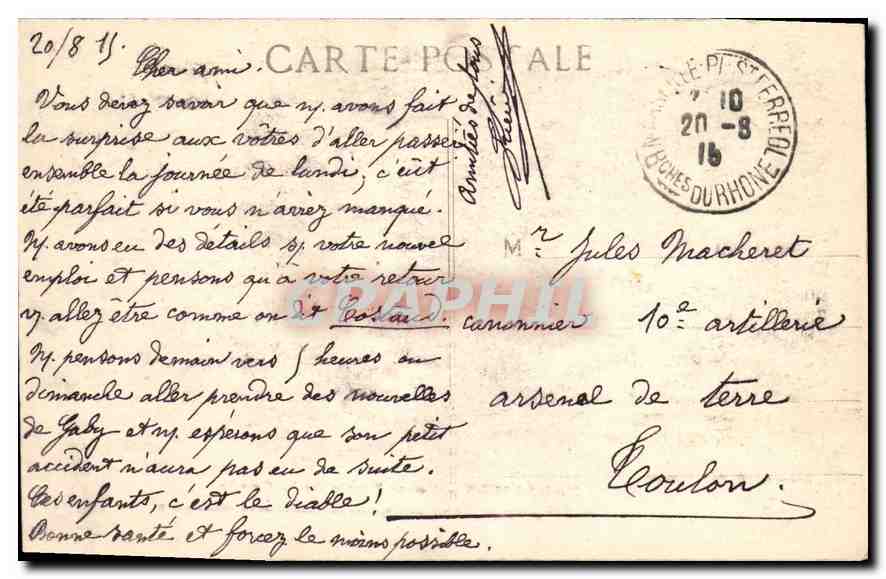 20/8 15.
CARTE POSTALE
Cher ami.
Vous devez savoir que n/. avons fait
la surprise aux vôtres d'aller passer
ensemble la journée de lundi, c'eût
été parfait si vous n'aviez manqué.
N/. avons eu des détails s/. votre nouvel
emploi et pensons qu'à votre retour
v/. allez être comme on dit Costaud.
N/. pensons demain vers 5 heures ou
dimanche aller prendre des nouvelles
de Gaby et n/. espérons que son petit
accident n'aura pas eu de suite.
Ces enfants, c'est le diable!
Bonne santé et forcez le moins possible.
Amitiés de tous
MARSEILLE-PL. ST FERREOL
10
20 -8
15
BCHES DU RHONE
Mr. Jules Macheret
canonnier 10e artillerie
arsenal de terre
Toulon.
CRAPHIL